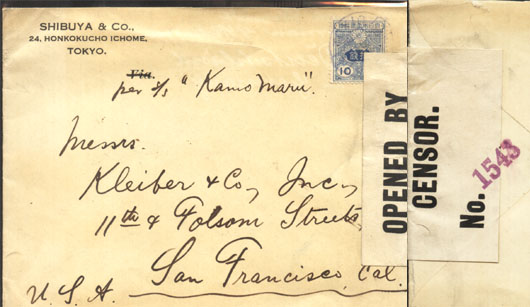 SHIBUYA & CO.,
24, HONKOKUCHO ICHOME,
TOKYO.
Via.
per s/s "Kamo Maru".
10
Messrs.
Kleiber & Co, Inc,
11th & Folsom Streets,
San Francisco, Cal.
U. S. A.
OPENED BY
CENSOR.
No. 1543